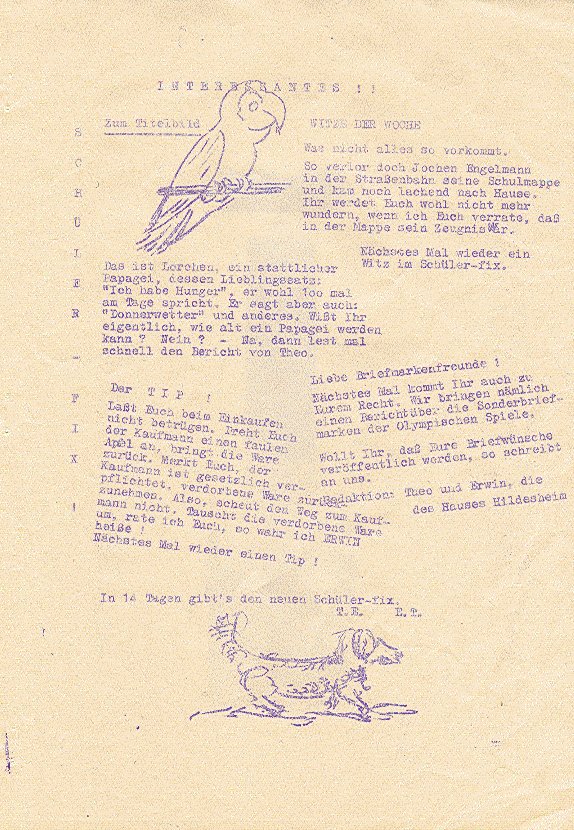 INTERESSANTES !!
SCHÜLER-FIX !
Zum Titelbild
Das ist Lorchen, ein stattlicher
Papagei, dessen Lieblingssatz:
"Ich habe Hunger", er wohl 100 mal
am Tage spricht. Er sagt aber auch:
"Donnerwetter" und anderes. Wißt Ihr
eigentlich, wie alt ein Papagei werden
kann ? Nein ? - Na, dann lest mal
schnell den Bericht von Theo.
WITZE DER WOCHE
Was nicht alles so vorkommt.
So verlor doch Jochen Engelmann
in der Straßenbahn seine Schulmappe
und kam noch lachend nach Hause.
Ihr werdet Euch wohl nicht mehr
wundern, wenn ich Euch verrate, daß
in der Mappe sein Zeugnis war.
Nächstes Mal wieder ein
Witz im Schüler-fix.
Der TIP !
Laßt Euch beim Einkaufen
nicht betrügen. Dreht Euch
der Kaufmann einen faulen
Apfel an, bringt die Ware
zurück. Merkt Euch, der
Kaufmann ist gesetzlich ver-
pflichtet, verdorbene Ware zurück-
zunehmen. Also, scheut den Weg zum Kauf-
mann nicht. Tauscht die verdorbene Ware
um, rate ich Euch, so wahr ich ERWIN
heiße !
Nächstes Mal wieder einen Tip !
Liebe Briefmarkenfreunde !
Nächstes Mal kommt Ihr auch zu
Eurem Recht. Wir bringen nämlich
einen Berichtüber die Sonderbrief-
marken der Olympischen Spiele.
Wollt Ihr, daß Eure Briefwünsche
veröffentlich werden, so schreibt
an uns.
Redaktion: Theo und Erwin, die
des Hauses Hildesheim
In 14 Tagen gibt's den neuen Schüler-fix.
T.E. E.T.